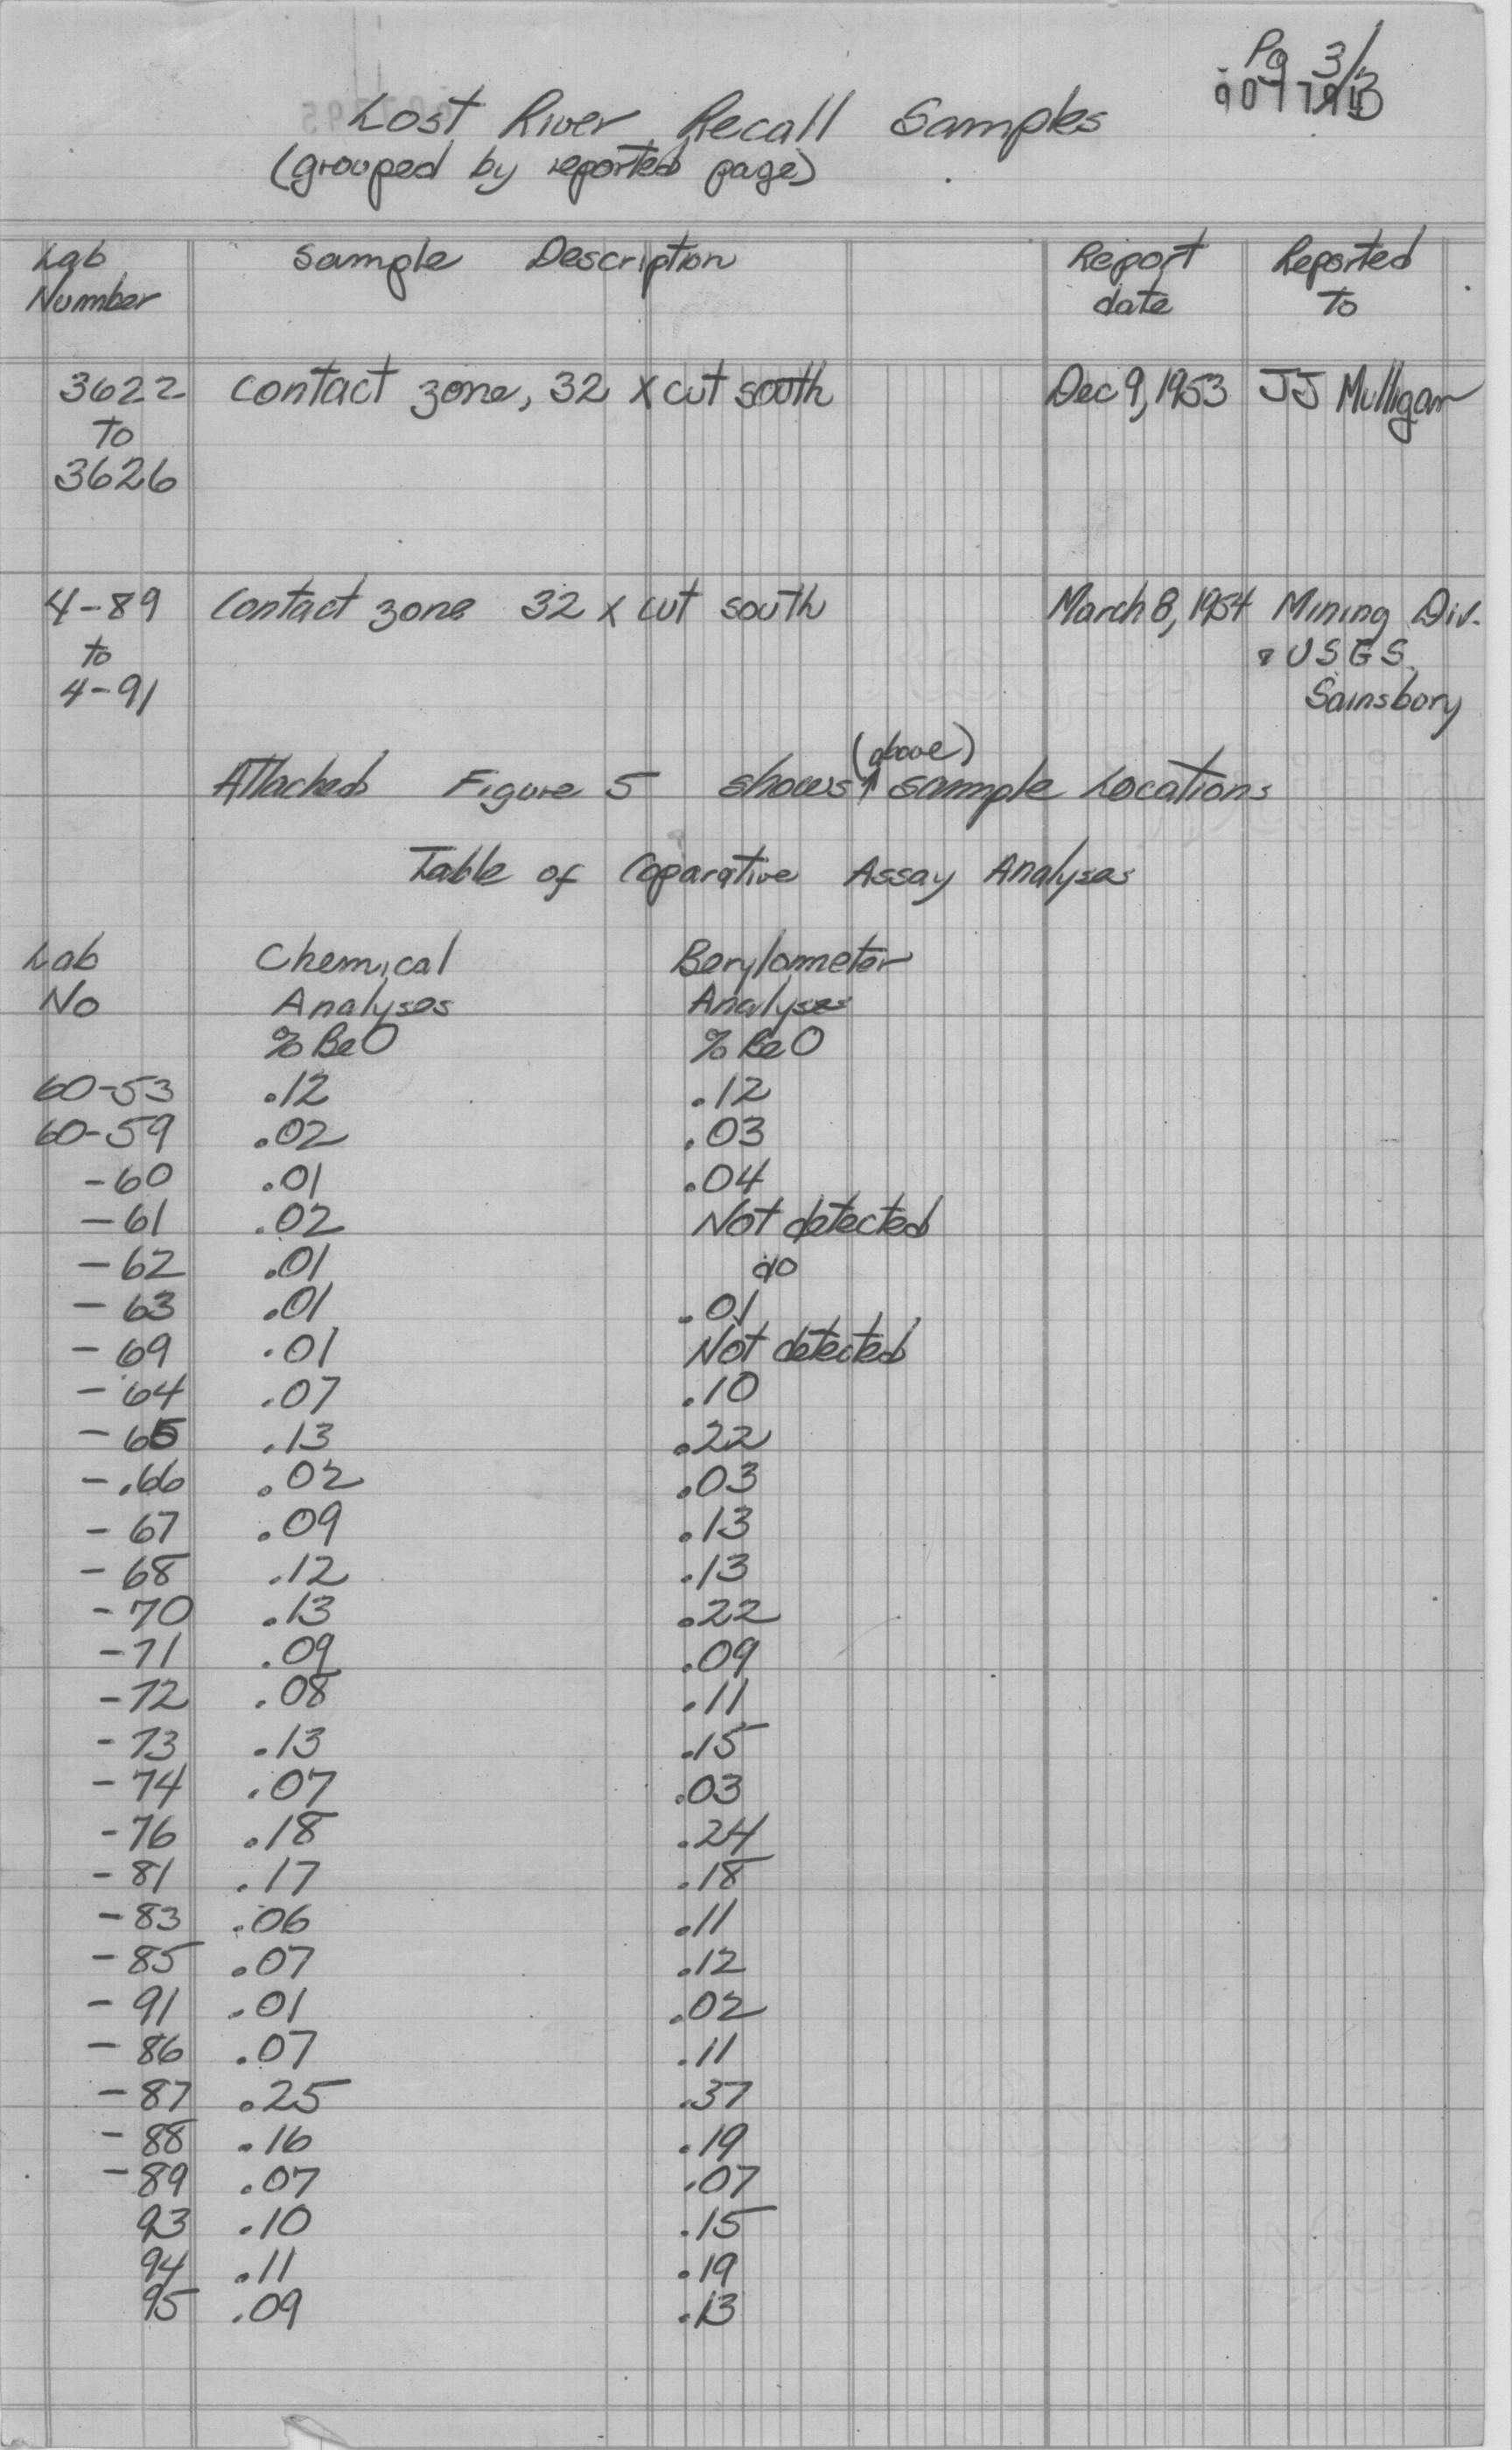 Pg 3/3
Lost River Recall Samples
(grouped by reported page)
Lab Number Sample Description Report date Reported To
3622 Contact zone, 32 X cut south Dec 9, 1953 JJ Mulligan
To
3626
4-89 Contact zone 32 x cut south March 8, 1954 Mining Div.
to USGS.
4-91 Sainsbory
(above)
Attached Figure 5 shows ↑ sample Locations
Table of Coparative Assay Analyses
Lab Chemical Berylometer
No Analyses Analyses
% BeO % BeO
60-53 .12 .12
60-59 .02 .03
-60 .01 .04
-61 .02 Not detected
-62 .01 do
-63 .01 .01
-69 .01 Not detected
-64 .07 .10
-65 .13 .22
-.66 .02 .03
-67 .09 .13
-68 .12 .13
-70 .13 .22
-71 .09 .09
-72 .08 .11
-73 .13 .15
-74 .07 .03
-76 .18 .24
-81 .17 .18
-83 .06 .11
-85 .07 .12
-91 .01 .02
-86 .07 .11
-87 .25 .37
-88 .16 .19
-89 .07 .07
93 .10 .15
94 .11 .19
95 .09 .13